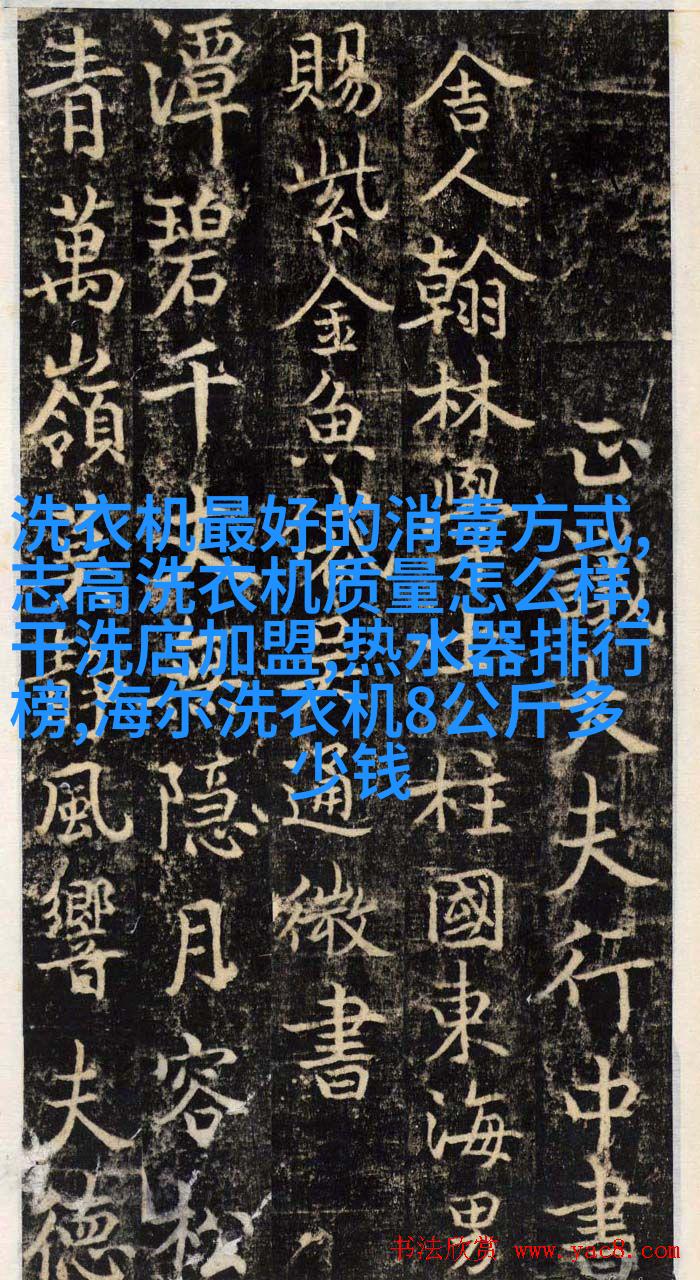 洗衣机最好的消毒方式,
志高洗衣机质量怎么样,
干洗店加盟,热水器排行
榜,海尔洗衣机8公斤多
少钱
正議大夫行中書
舍人翰林學士柱國東海男
賜紫金魚通微書
潭碧千隱月容松
青萬嶺風響夫德
书法欣赏 www.yac8.com